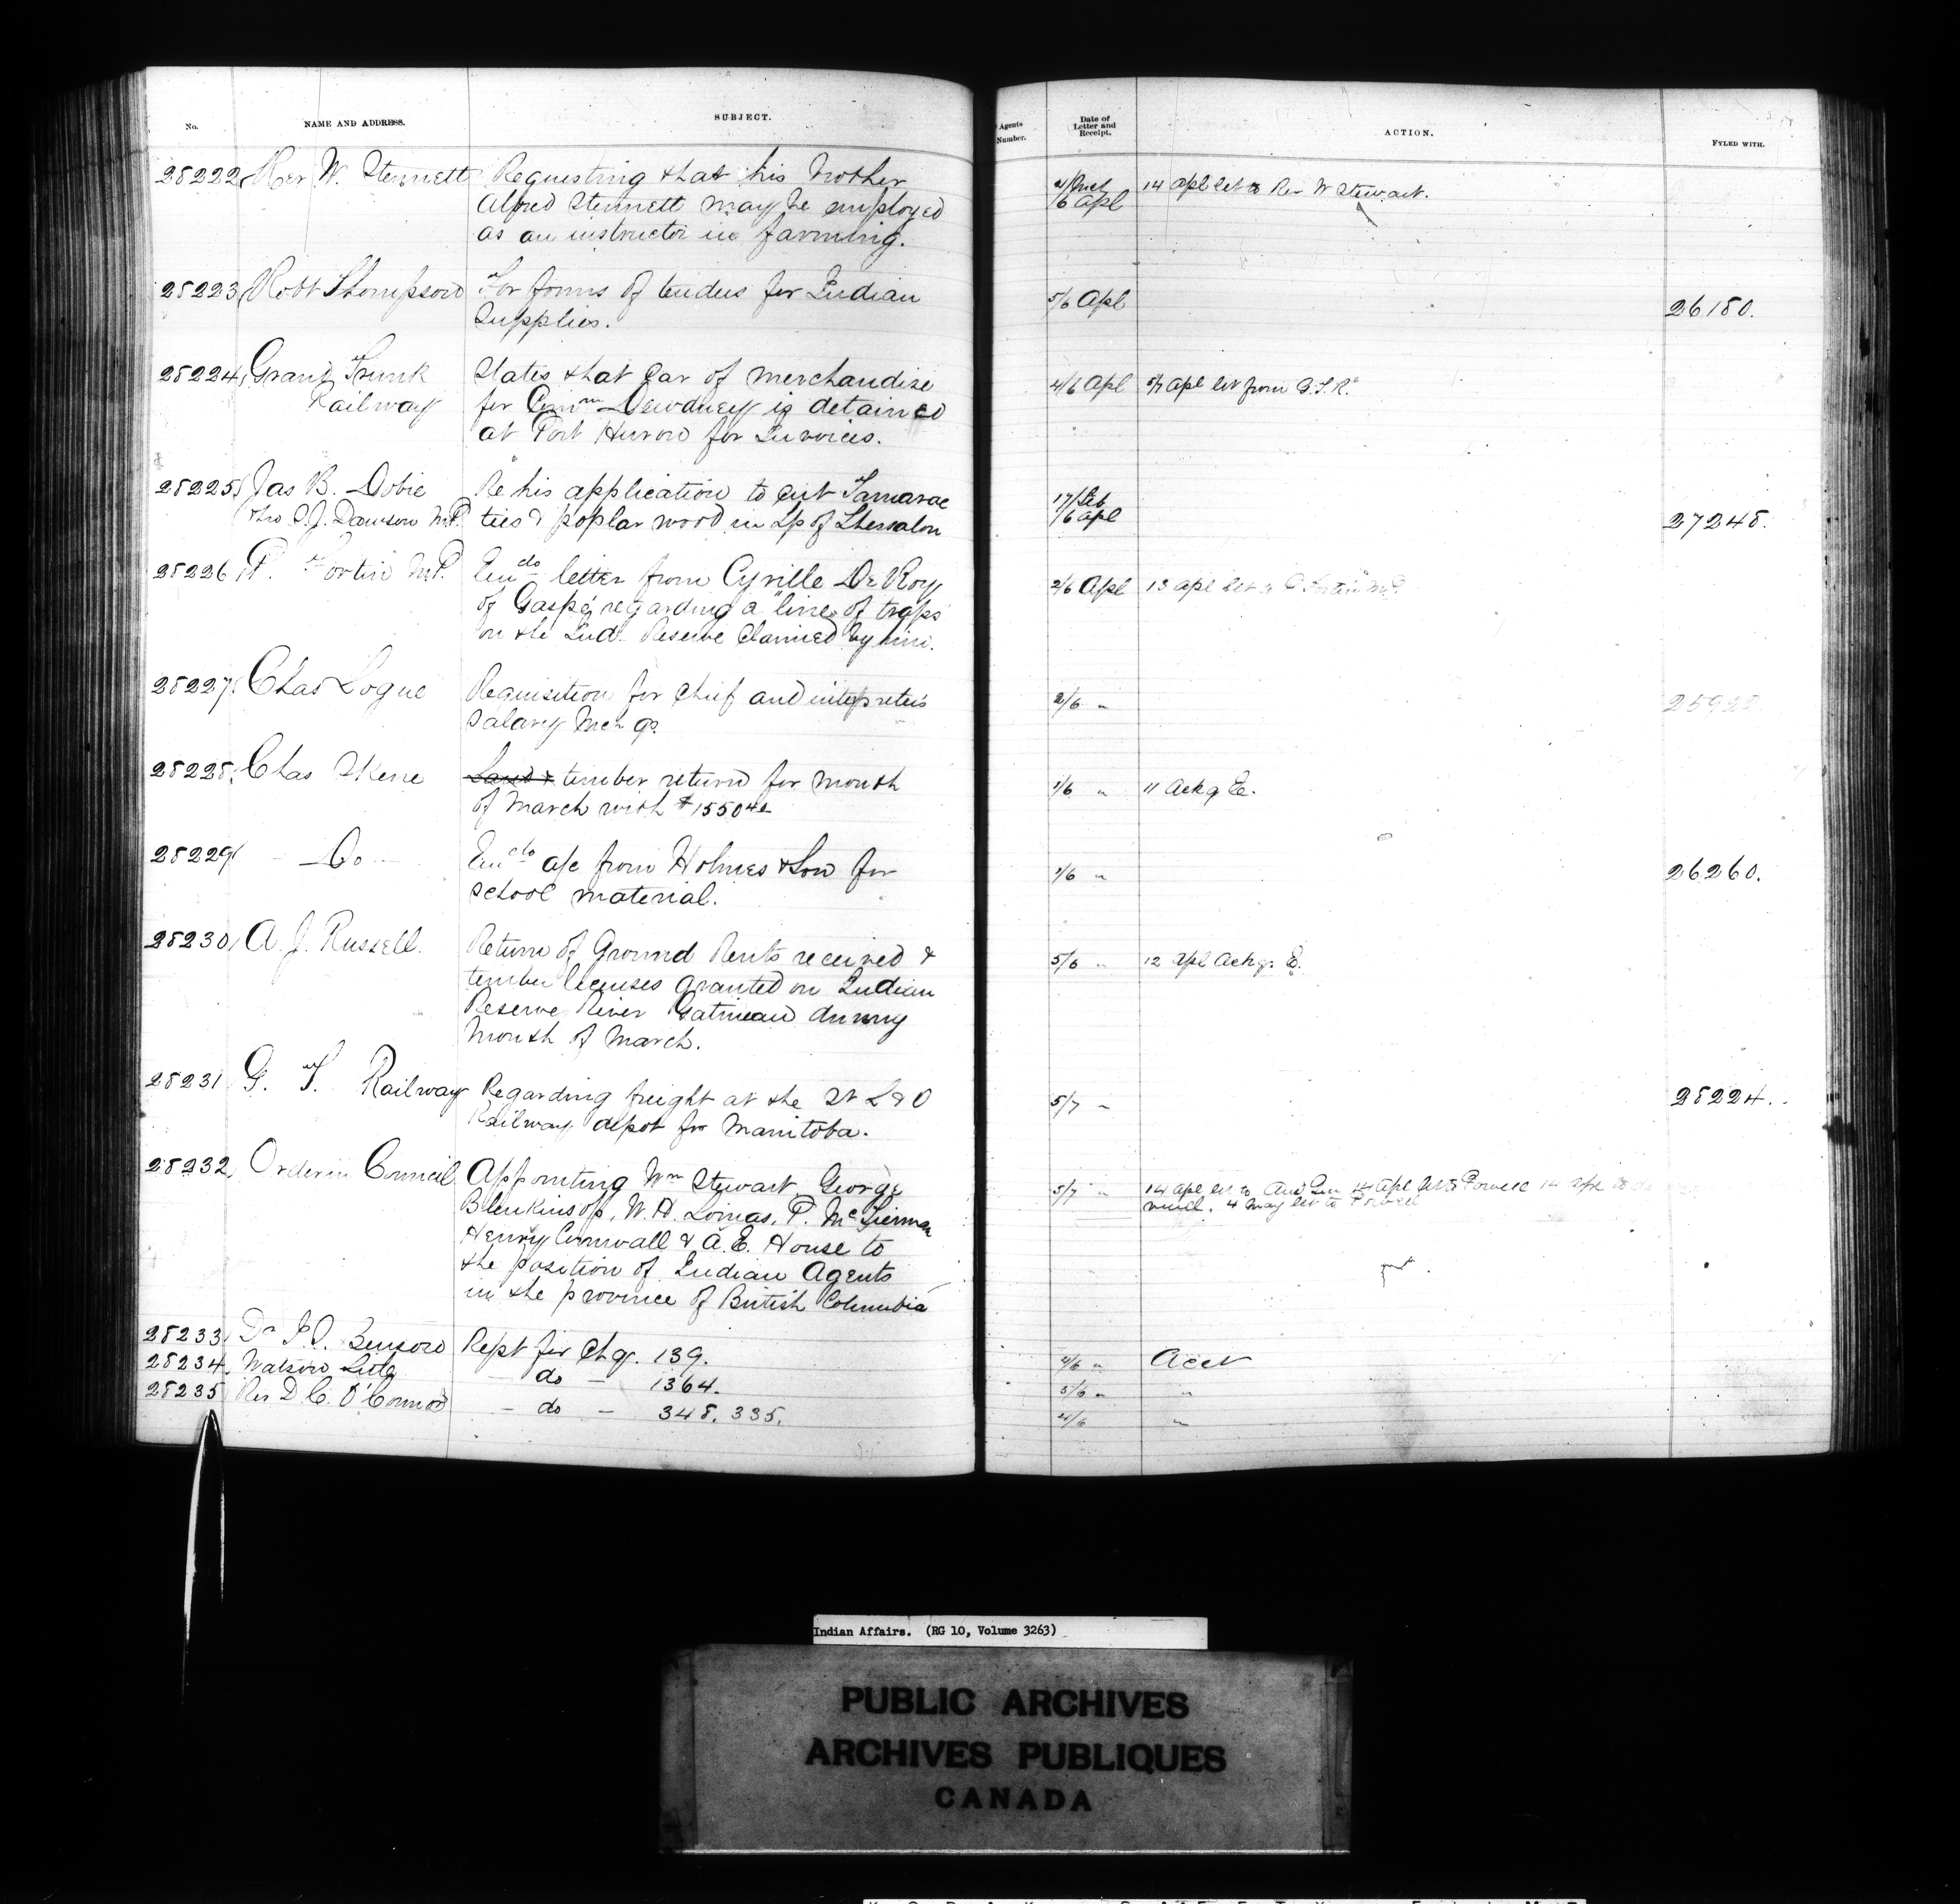 No.
NAME AND ADDRESS.
SUBJECT.
Agents Number.
Date of Letter and Receipt.
ACTION.
FYLED WITH.
28222 Rev W. Stennett Requesting that his brother
Alfred Stennett may be employed
as an instructor in farming.
6 Apl 14 Apl let to Rev W Stewart.
28223 Robt Thompson For forms of tenders for Indian
Supplies.
5/6 Apl 26180.
28224 Grand Trunk States that Car of merchandise
Railway for Comm Dewdney is detained
at Port Huron for Invoices.
4/6 Apl 5/7 Apl let from G.T.R.
28225 Jas B. Dobie Re his application to cut Tamarac
thro S.J. Dawson M.P. ties & poplar wood in Tp of Thessalon
17/Feb
/6 Apl 27248.
28226 P. Fortin M.P. Encdo letter from Cyrille DeRoy
of Gaspé, regarding a "line of traps"
on the Ind. Reserve Claimed by him.
2/6 Apl 13 Apl let to P. Fortin M.P.
28227 Chas Logue Requisition for Chief and interpreters
salary Mch qr.
2/6 "
28228 Chas Skene Land & timber return for month
of March with $1550
1/6 " 11 Ackg E.
28229 - Do - Encdo a/c from Holmes & Son for
school material.
1/6 " 26260.
28230 A. J. Russell. Return of Ground Rents received &
timber licenses granted on Indian
Reserve River Gatineau during
Month of March.
5/6 " 12 Apl Ackg. E.
28231 G. T. Railway Regarding freight at the St L & O
Railway depot for Manitoba.
5/7 " 28224.
28232 Order in Council Appointing Wm Stewart, George
Blenkinsop, W. H. Lomas, P. McTiernan
Henry Cornwall & A. E. Howse to
the position of Indian Agents
in the province of British Columbia
5/7 " 14 Apl let to Aud Gen 14 Apl let to Powell 14 Apl to
4 May let to Powell
28233 Dr Benson Rept for Chq. 139.
4/6 " Acct
28234 Watson Little - do - 1364.
5/6 " "
28235 Rev D C. O'Connor - do - 348. 335.
4/6 "
Indian Affairs. (RG 10, Volume 3263)
PUBLIC ARCHIVES
ARCHIVES PUBLIQUES
CANADA